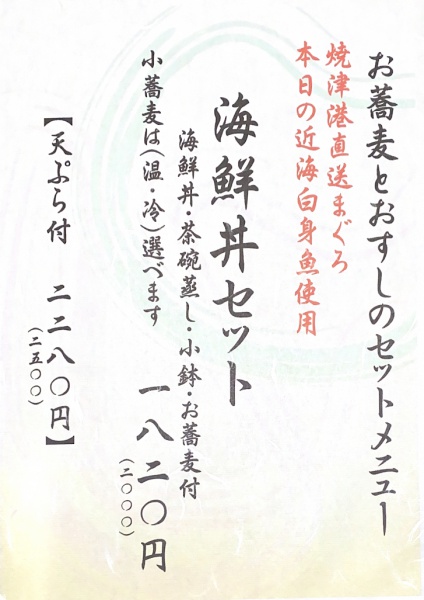 お蕎麦とおすしのセットメニュー
焼津港直送まぐろ
本日の近海白身魚使用
海鮮丼セット
海鮮丼・茶碗蒸し・小鉢・お蕎麦付
小蕎麦は(温・冷)選べます
一八二〇円
(二〇〇〇)
【天ぷら付 二二八〇円】
(二五〇〇)